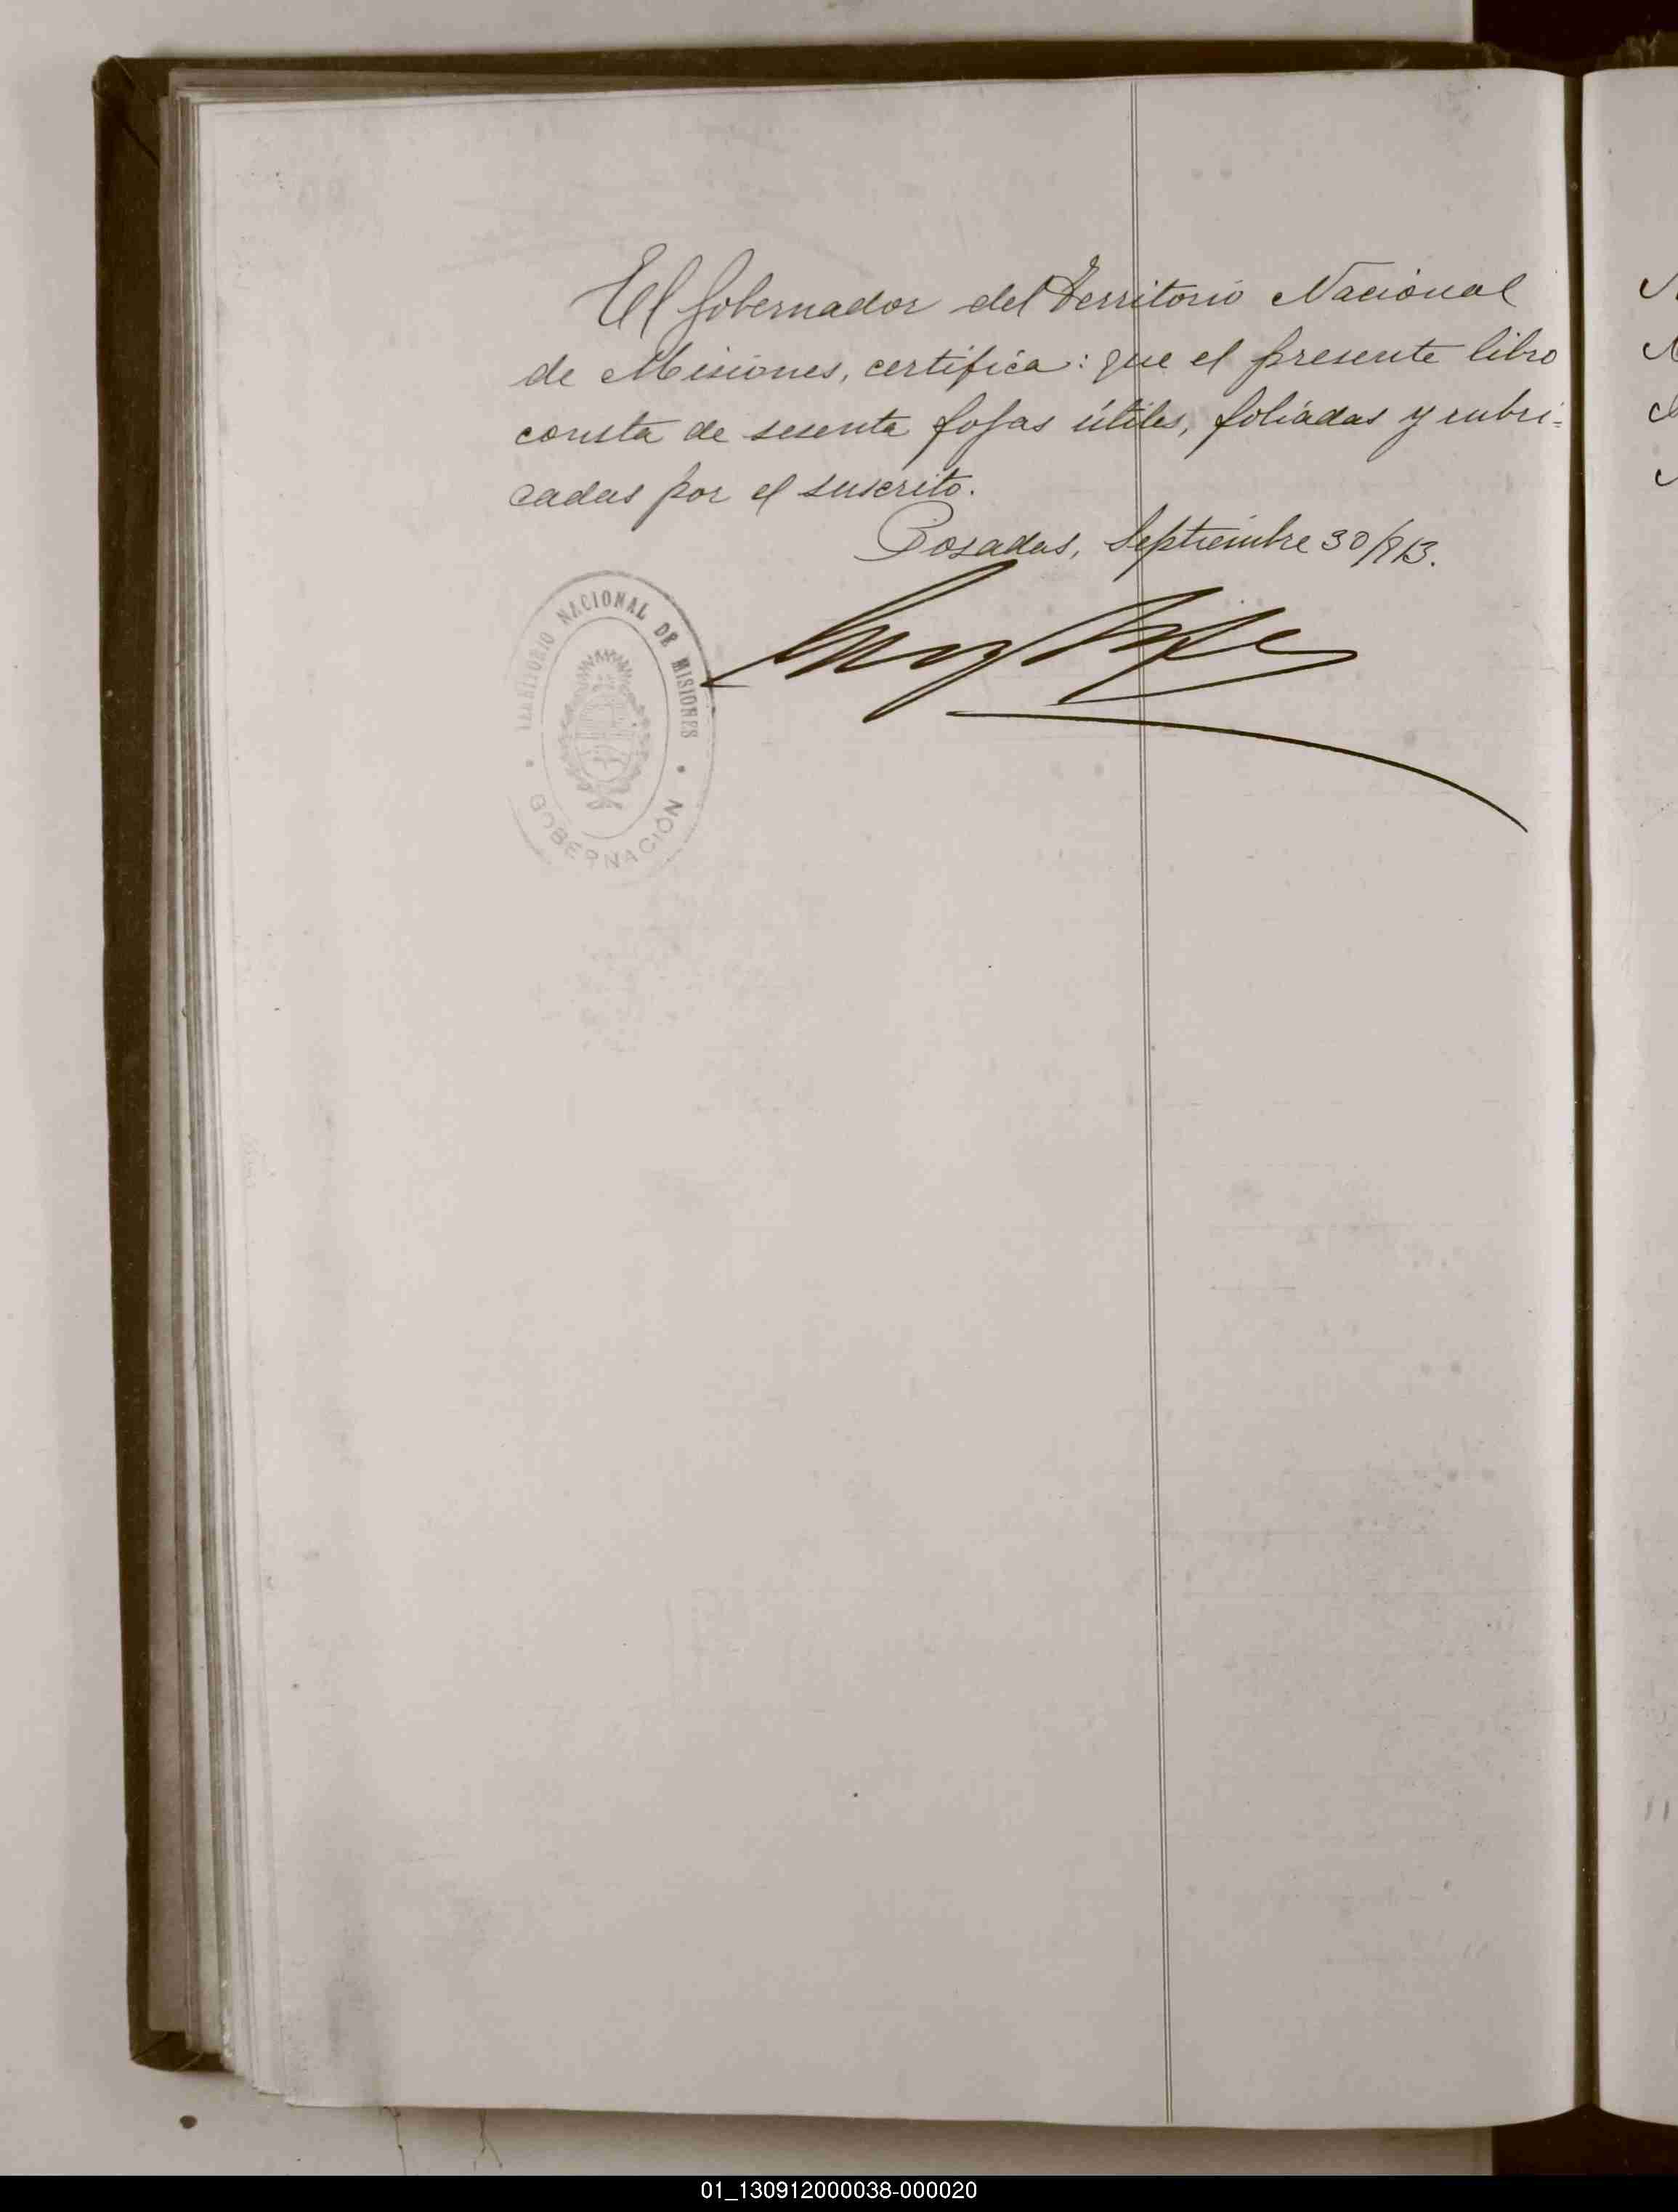 El Gobernador del Territorio Nacional
de Misiones, certifica: que el presente libro
consta de sesenta fojas útiles, foliadas y rubri=
cadas por el suscrito.
Posadas, Septiembre 30/913.
TERRITORIO NACIONAL DE MISIONES
GOBERNACIÓN
01_130912000038-000020